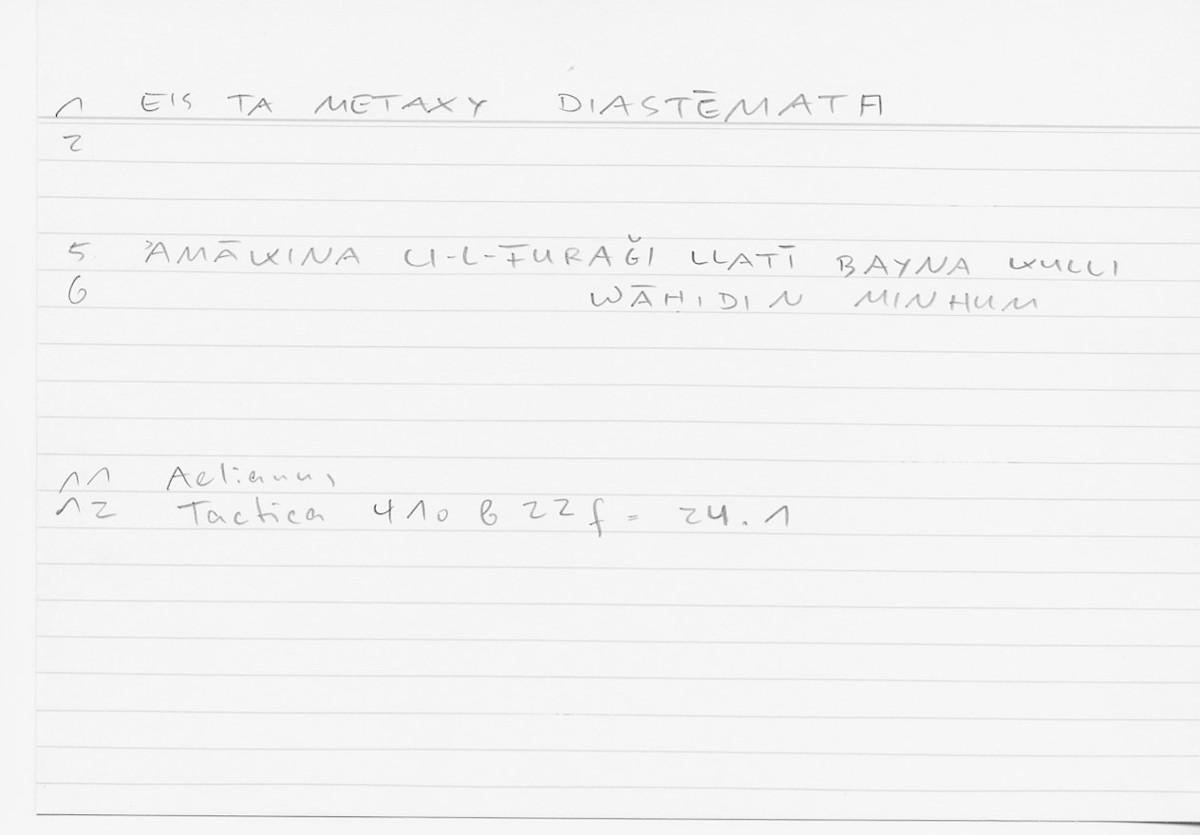 1 EIS TA METAXY DIASTĒMATA
2
5 ʾAMĀKINA LI-L-FURAǦI LLATĪ BAYNA KULLI
6 WĀḤIDIN MINHUM
11 Aelianus,
12 Tactica 410 b 22 f = 24.1